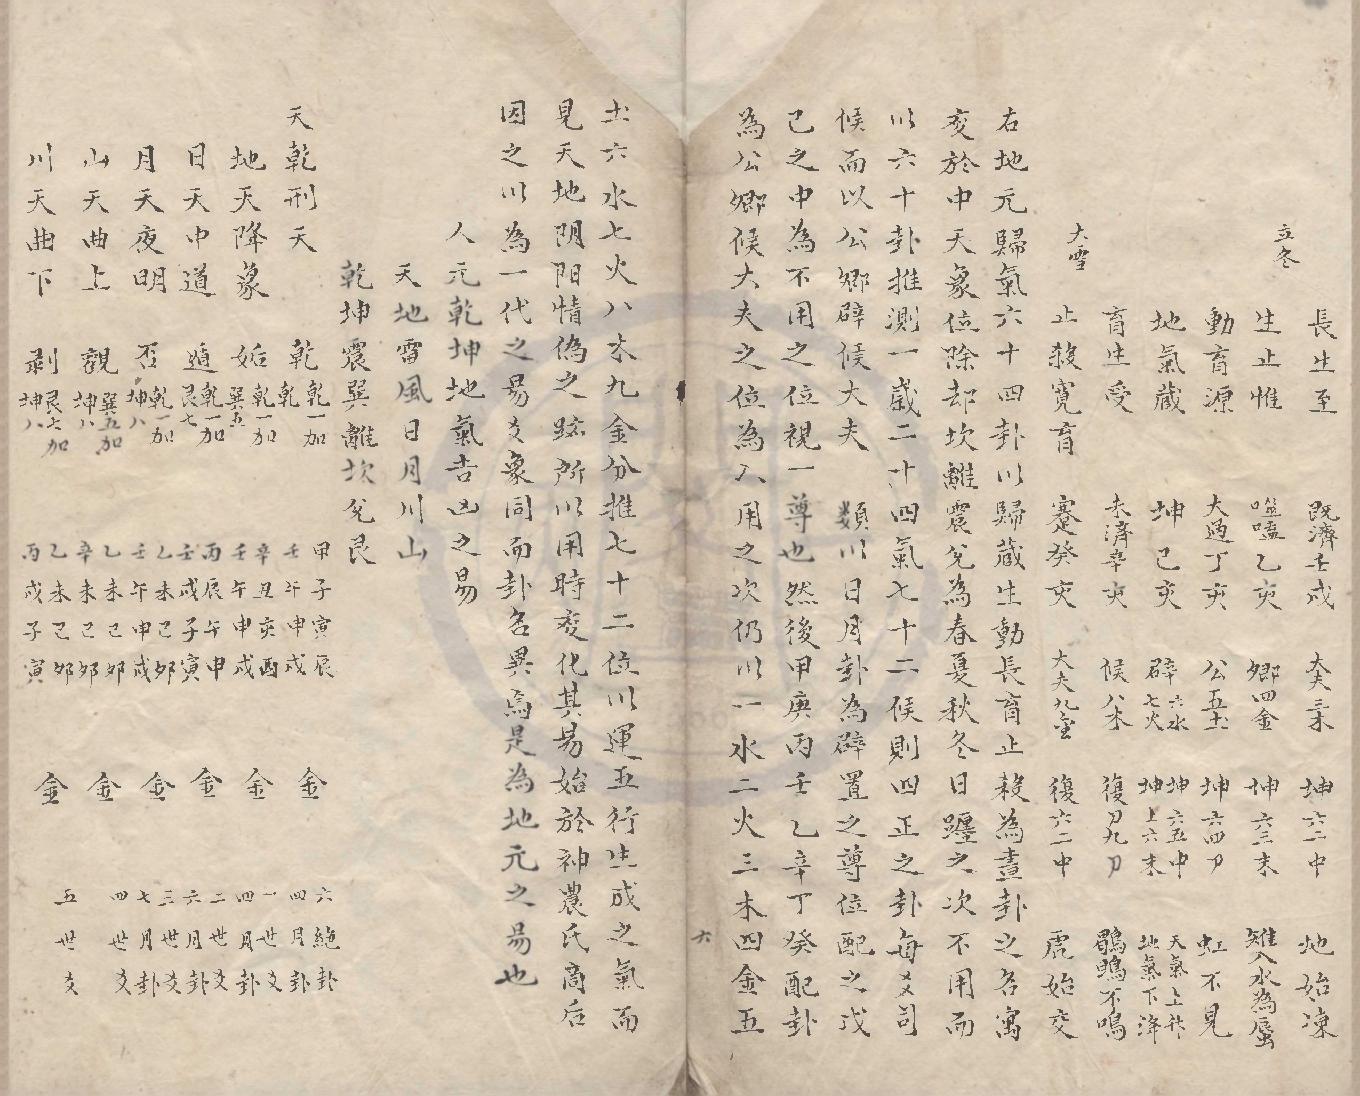 立冬
長生至 既濟壬戌 大夫三木 坤六二中 地始凍
生止惟 噬嗑乙亥 卿四金 坤六三末 雉入水為蜃
動育源 大過丁亥 公五土 坤六四刀 虹不見
地氣藏 坤己亥 辟六水七火 坤六五中坤上六末 天氣上升地氣下降
育生受 未濟辛亥 侯八木 復刀九刀 鶡鴠不鳴
大雪
止殺寬育 蹇癸亥 大夫九金 復六二中 虎始交
右地元歸氣六十四卦以歸藏生動長育止殺為畫卦之名寓
爻於中天象位除却坎離震兌為春夏秋冬日躔之次不用而
以六十卦推測一歲二十四氣七十二候則四正之卦每爻司
候而以公卿辟侯大夫 類以日月卦為辟置之尊位配之戊
己之中為不用之位視一尊也然後甲庚丙壬乙辛丁癸配卦
為公卿候大夫之位為入用之次仍以一水二火三木四金五
六
土六水七火八木九金分推七十二位以運五行生成之氣而
見天地阴阳情偽之跡所以用時变化其易始於神農氏高后
因之以為一代之易爻象同而卦名異焉是為地元之易也
人元乾坤地氣吉凶之易
天地雷風日月川山
乾坤震巽離坎兌艮
天乾刑天 乾乾一加乾 甲子寅辰壬午申戌 金 六絶卦四月卦
地天降蒙 姤乾一加巽五 辛丑亥酉壬午申戌 金 一世爻四月卦
日天中道 遁乾一加艮七 丙辰午申壬戌子寅 金 二世爻六月卦
月天夜明 否乾一加坤八 乙未己夘壬午申戌 金 三世爻七月卦
山天曲上 觀巽五加坤八 乙未己夘辛未己夘 金 四世爻
川天曲下 剥艮七加坤八 乙未己夘丙戌子寅 金 五世爻